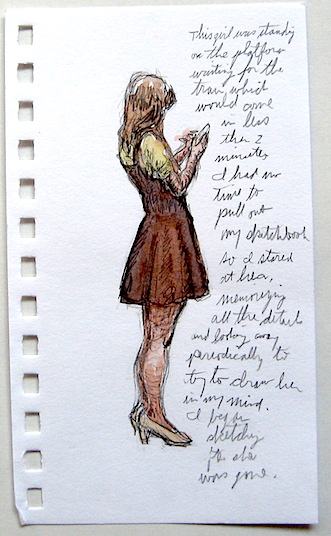 This girl was standing
on the platform
waiting for the
train, which
would come
in less
than 2
minutes
I had no
time to
pull out
my sketchbook
so I stared
at her,
memorizing
all the details
and looking away
periodically to
try to draw her
in my mind.
I began
sketching
she
was gone.